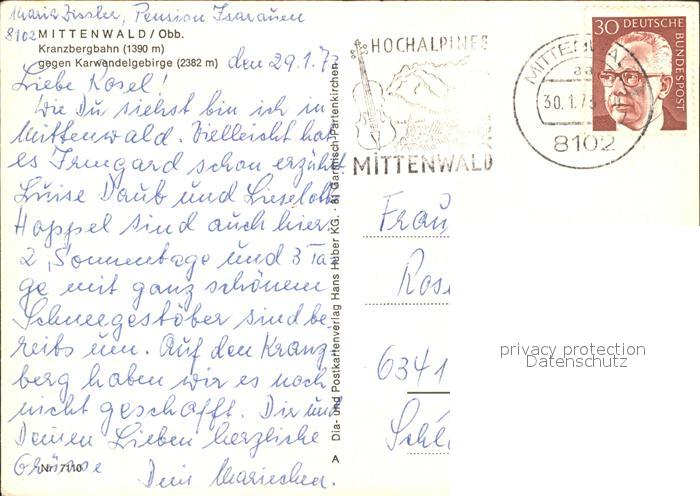 Maria Zissler, Pension Isarauen
8102 MITTENWALD/Obb.
Kranzbergbahn (1390 m)
gegen Karwendelgebirge (2382 m)
den 29.1.73
Liebe Rosel!
Wie Du siehst bin ich in
Mittenwald. Vielleicht hat
es Irmgard schon erzählt
Luise Daub und Lieselott
Hoppel sind auch hier
2 Sonnentage und 3 Ta
ge mit ganz schönem
Schneegestöber sind be
reits um. Auf den Kranz
berg haben wir es noch
nicht geschafft. Dir und
Deinen Lieben herzliche
Grüsse
Dein Mariechen.
Nr. 7110
A Dia- und Postkartenverlag Hans Huber KG. · 81 Garmisch-Partenkirchen
HOCHALPINES
MITTENWALD
MITTENWAL
aa
30.1.73
8102
30 DEUTSCHE
BUNDESPOST
Frau
Rose
6341
Schl
privacy protection
Datenschutz